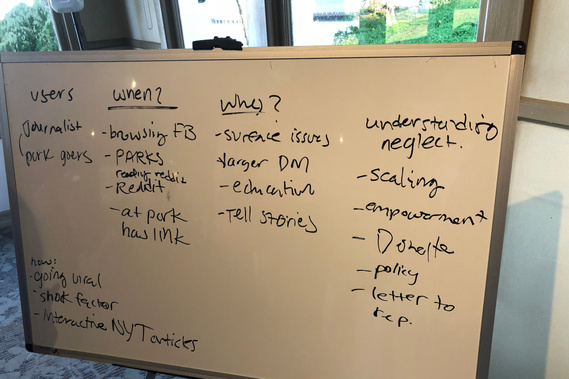 users
Journalist
park goers
when?
- browsing FB
- PARKS
reading reddit
- Reddit
- at park
has link
why?
- surface issues
- larger DM
- education
- Tell stories
understanding
neglect.
- scaling
- empowerment
- Donate
- policy
- letter to
rep.
how:
- going viral
- shock factor
- interactive NYT articles